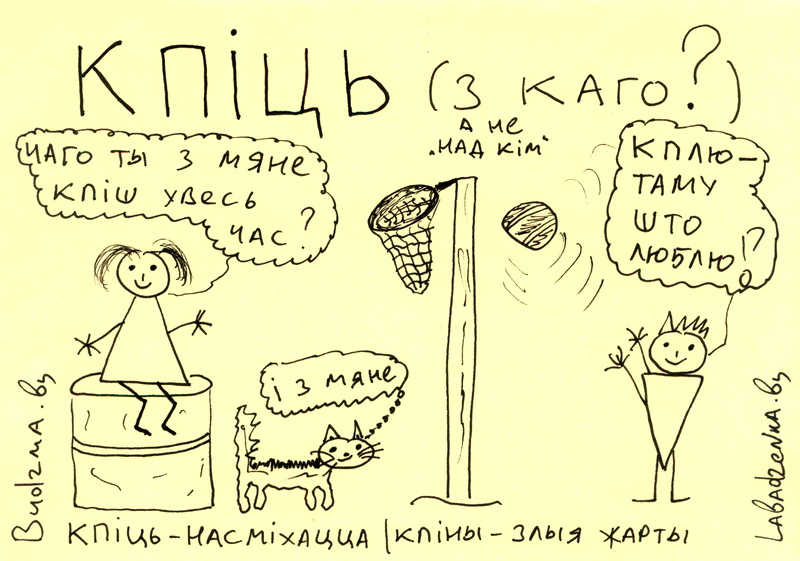 КПІЦЬ (З КАГО?)
А НЕ
„НАД КІМ“
ЧАГО ТЫ З МЯНЕ
КПІШ УВЕСЬ
ЧАС?
КПЛЮ –
ТАМУ
ШТО
ЛЮБЛЮ!?
І З МЯНЕ
Budzma.by
Labadzenka.by
КПІЦЬ – НАСМІХАЦЦА | КПІНЫ – ЗЛЫЯ ЖАРТЫ